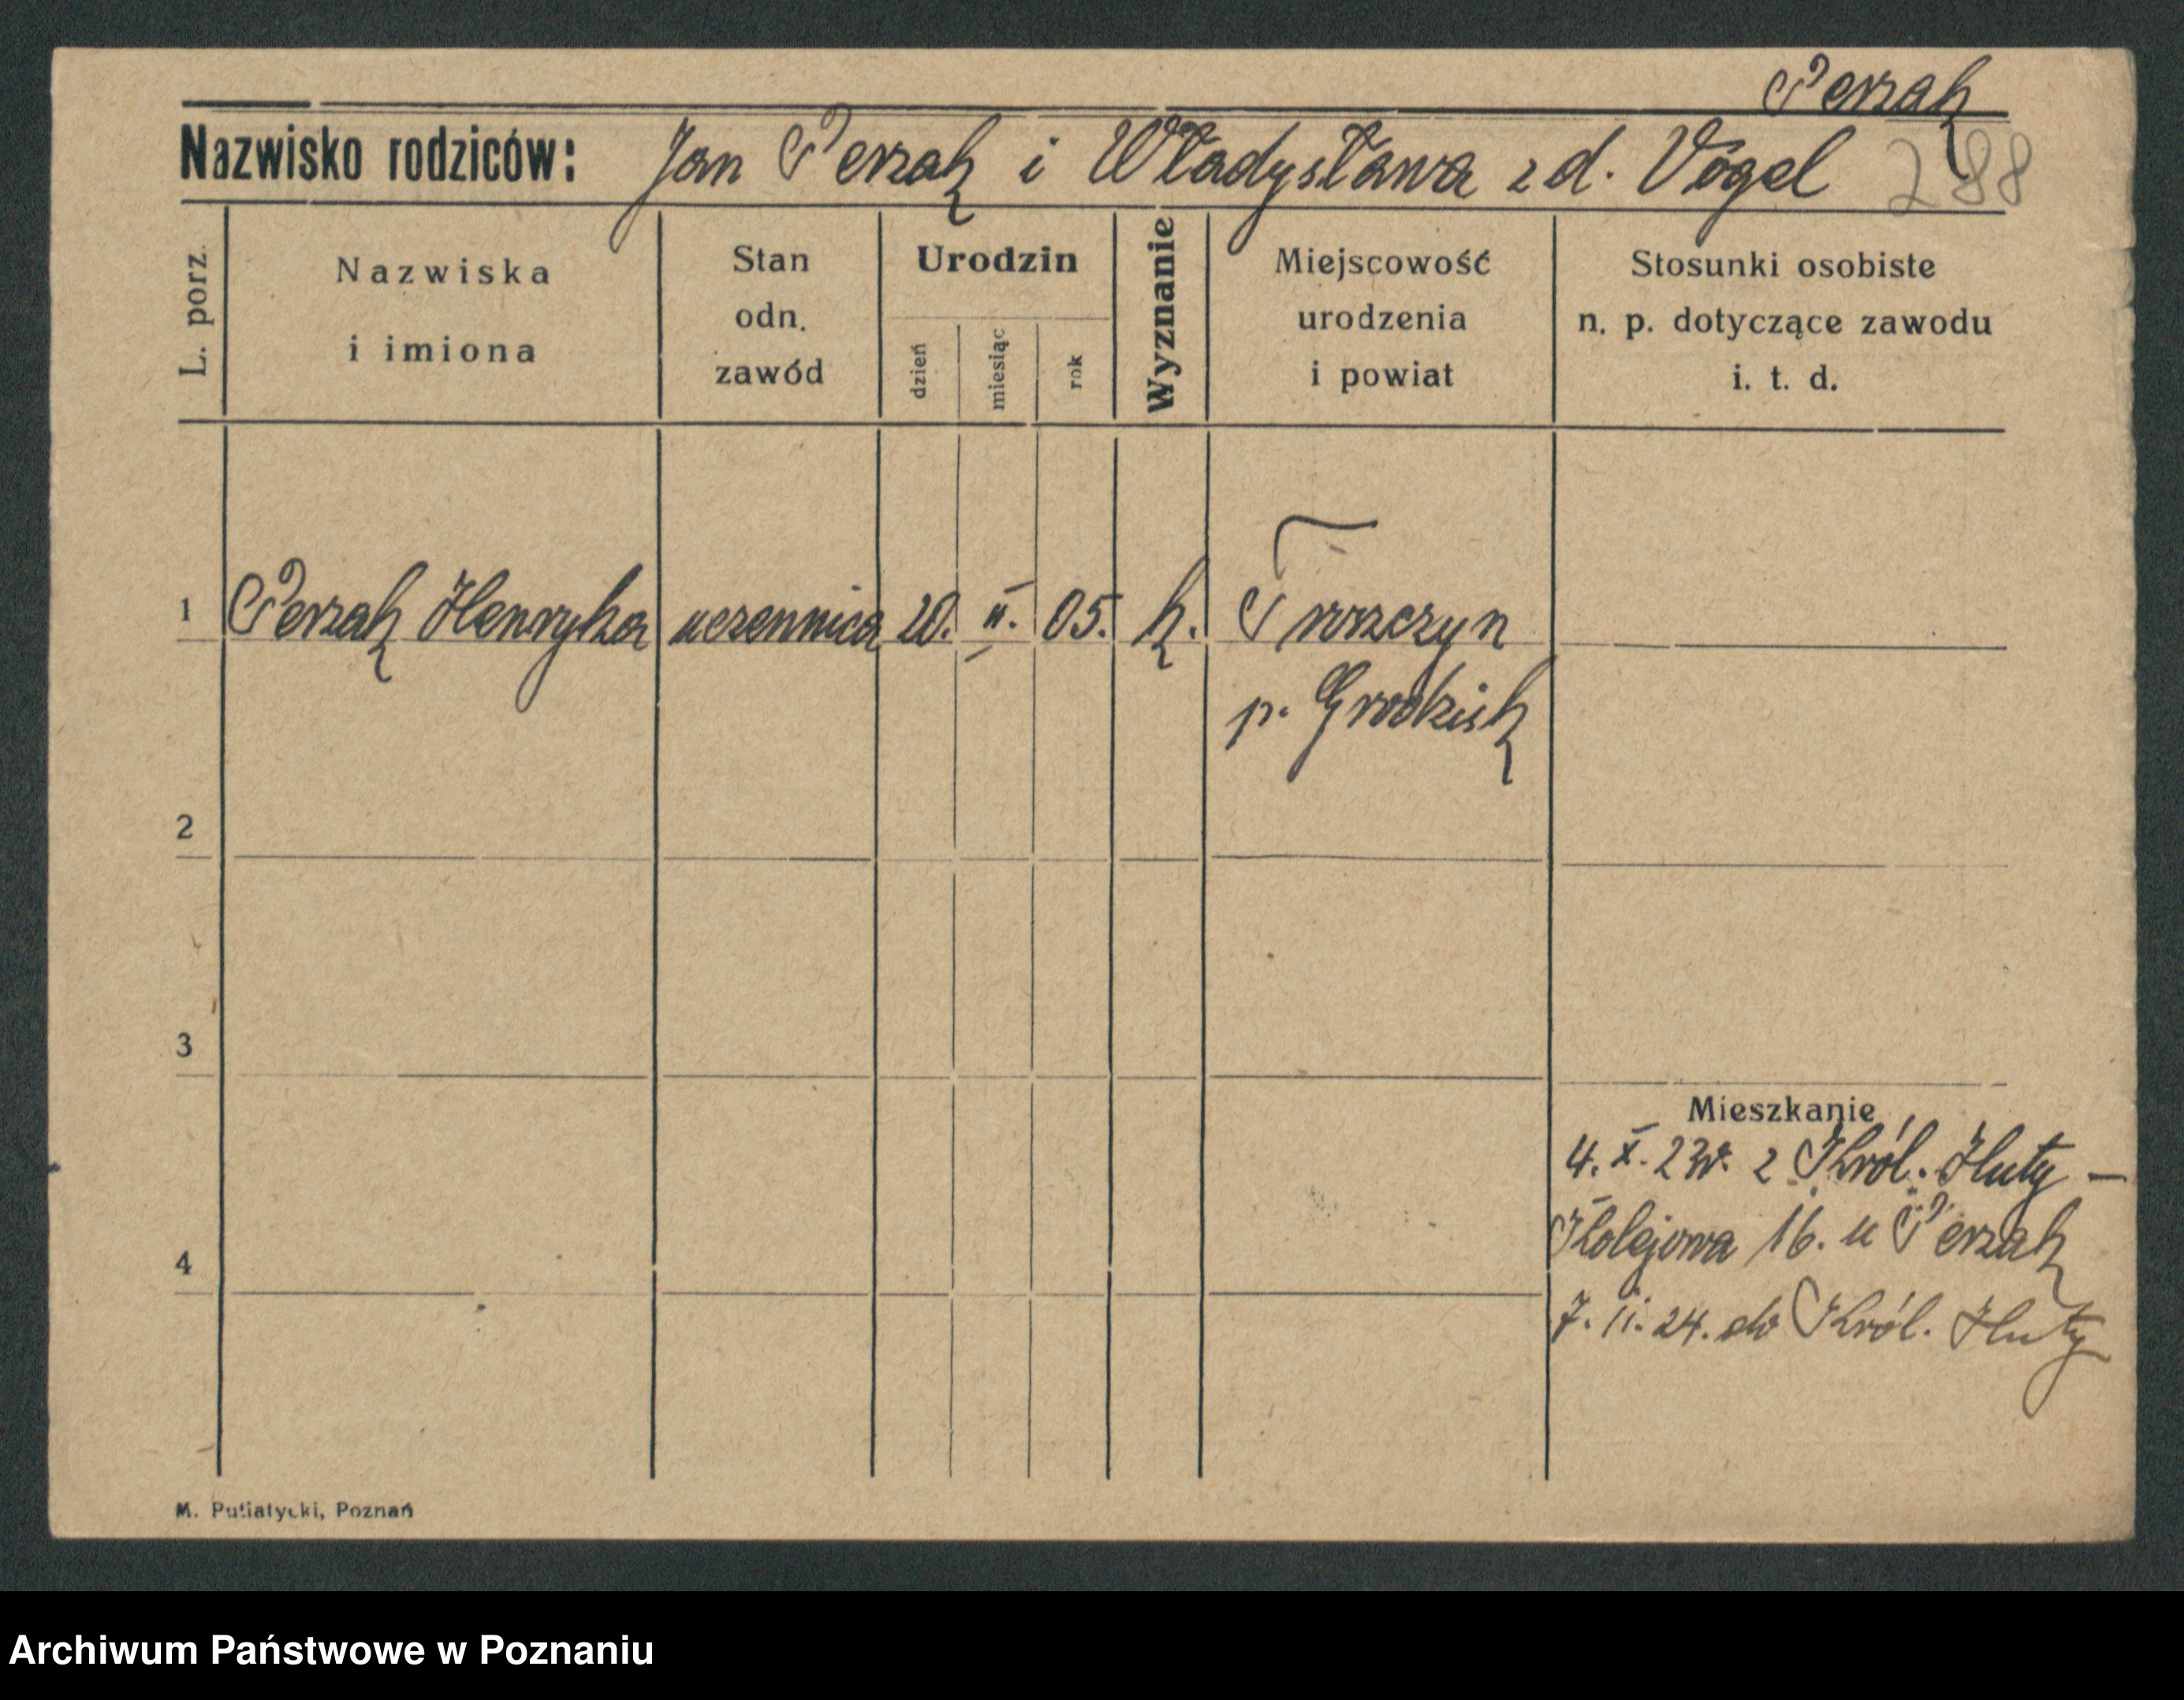 Perzak
Nazwisko rodziców: Jan Perzak i Władysława z d. Vogel 288
L. porz.
Nazwiska
i imiona
Stan
odn.
zawód
Urodzin
dzień
miesiąc
rok
Wyznanie
Miejscowość
urodzenia
i powiat
Stosunki osobiste
n. p. dotyczące zawodu
i. t. d.
1 Perzak Henryka uczennica 20. II. 05. k. Troszczyn
p. Grodzisk
2
3
Mieszkanie
4. X. 23r. z Król. Huty –
Kolejowa 16. u Perzak
4
7. 11. 24. do Król. Huty
M. Putiatycki, Poznań
Archiwum Państwowe w Poznaniu